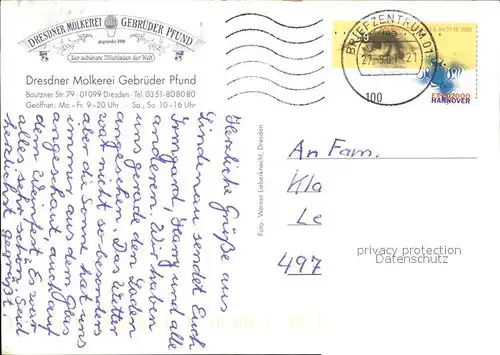 DRESDNER MOLKEREI GEBRÜDER PFUND
gegründet 1880
Der schönste Milchladen der Welt
Dresdner Molkerei Gebrüder Pfund
Bautzner Str. 79 · 01099 Dresden · Tel: 0351-80 80 80
Geöffnet: Mo. - Fr. 9-20 Uhr · Sa., So. 10-16 Uhr
Herzliche Grüße aus
Lindenau sendet Euch
Irmgard, Harry und alle
anderen. Wir haben
uns gerad den Laden
angesehen. Das Wetter
war nicht so besonders
aber die Sonne hat uns
immer aus dem Glas
angeschaut, auch auf
dem Weinfest. Es war
alles sehr schön. Seid
herzlichst gegrüßt.
Foto: Werner Lieberknecht, Dresden
BRIEFZENTRUM 01
21
100
EXPO2000
HANNOVER
An Fam.
Kla
Le
497
privacy protection
Datenschutz